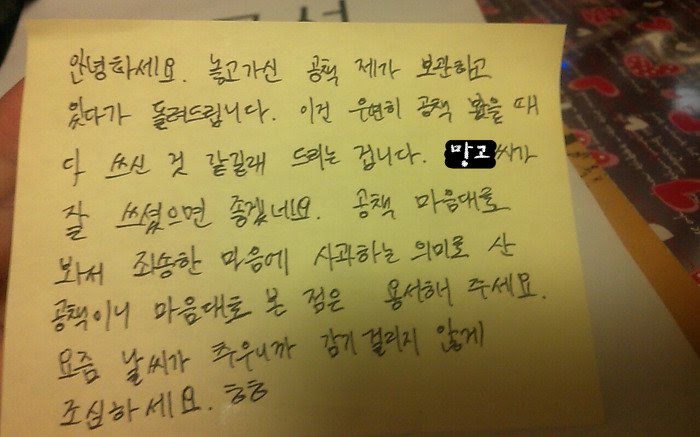 안녕하세요. 놓고가신 공책 제가 보관하고
있다가 돌려드립니다. 이건 우연히 공책 봤을 때
다 쓰신 것 같길래 드리는 겁니다. 망고씨가
잘 쓰셨으면 좋겠네요. 공책 마음대로
봐서 죄송한 마음에 사과하는 의미로 산
공책이니 마음대로 본 점은 용서해 주세요.
요즘 날씨가 추우니까 감기 걸리지 않게
조심하세요. ㅎㅎ